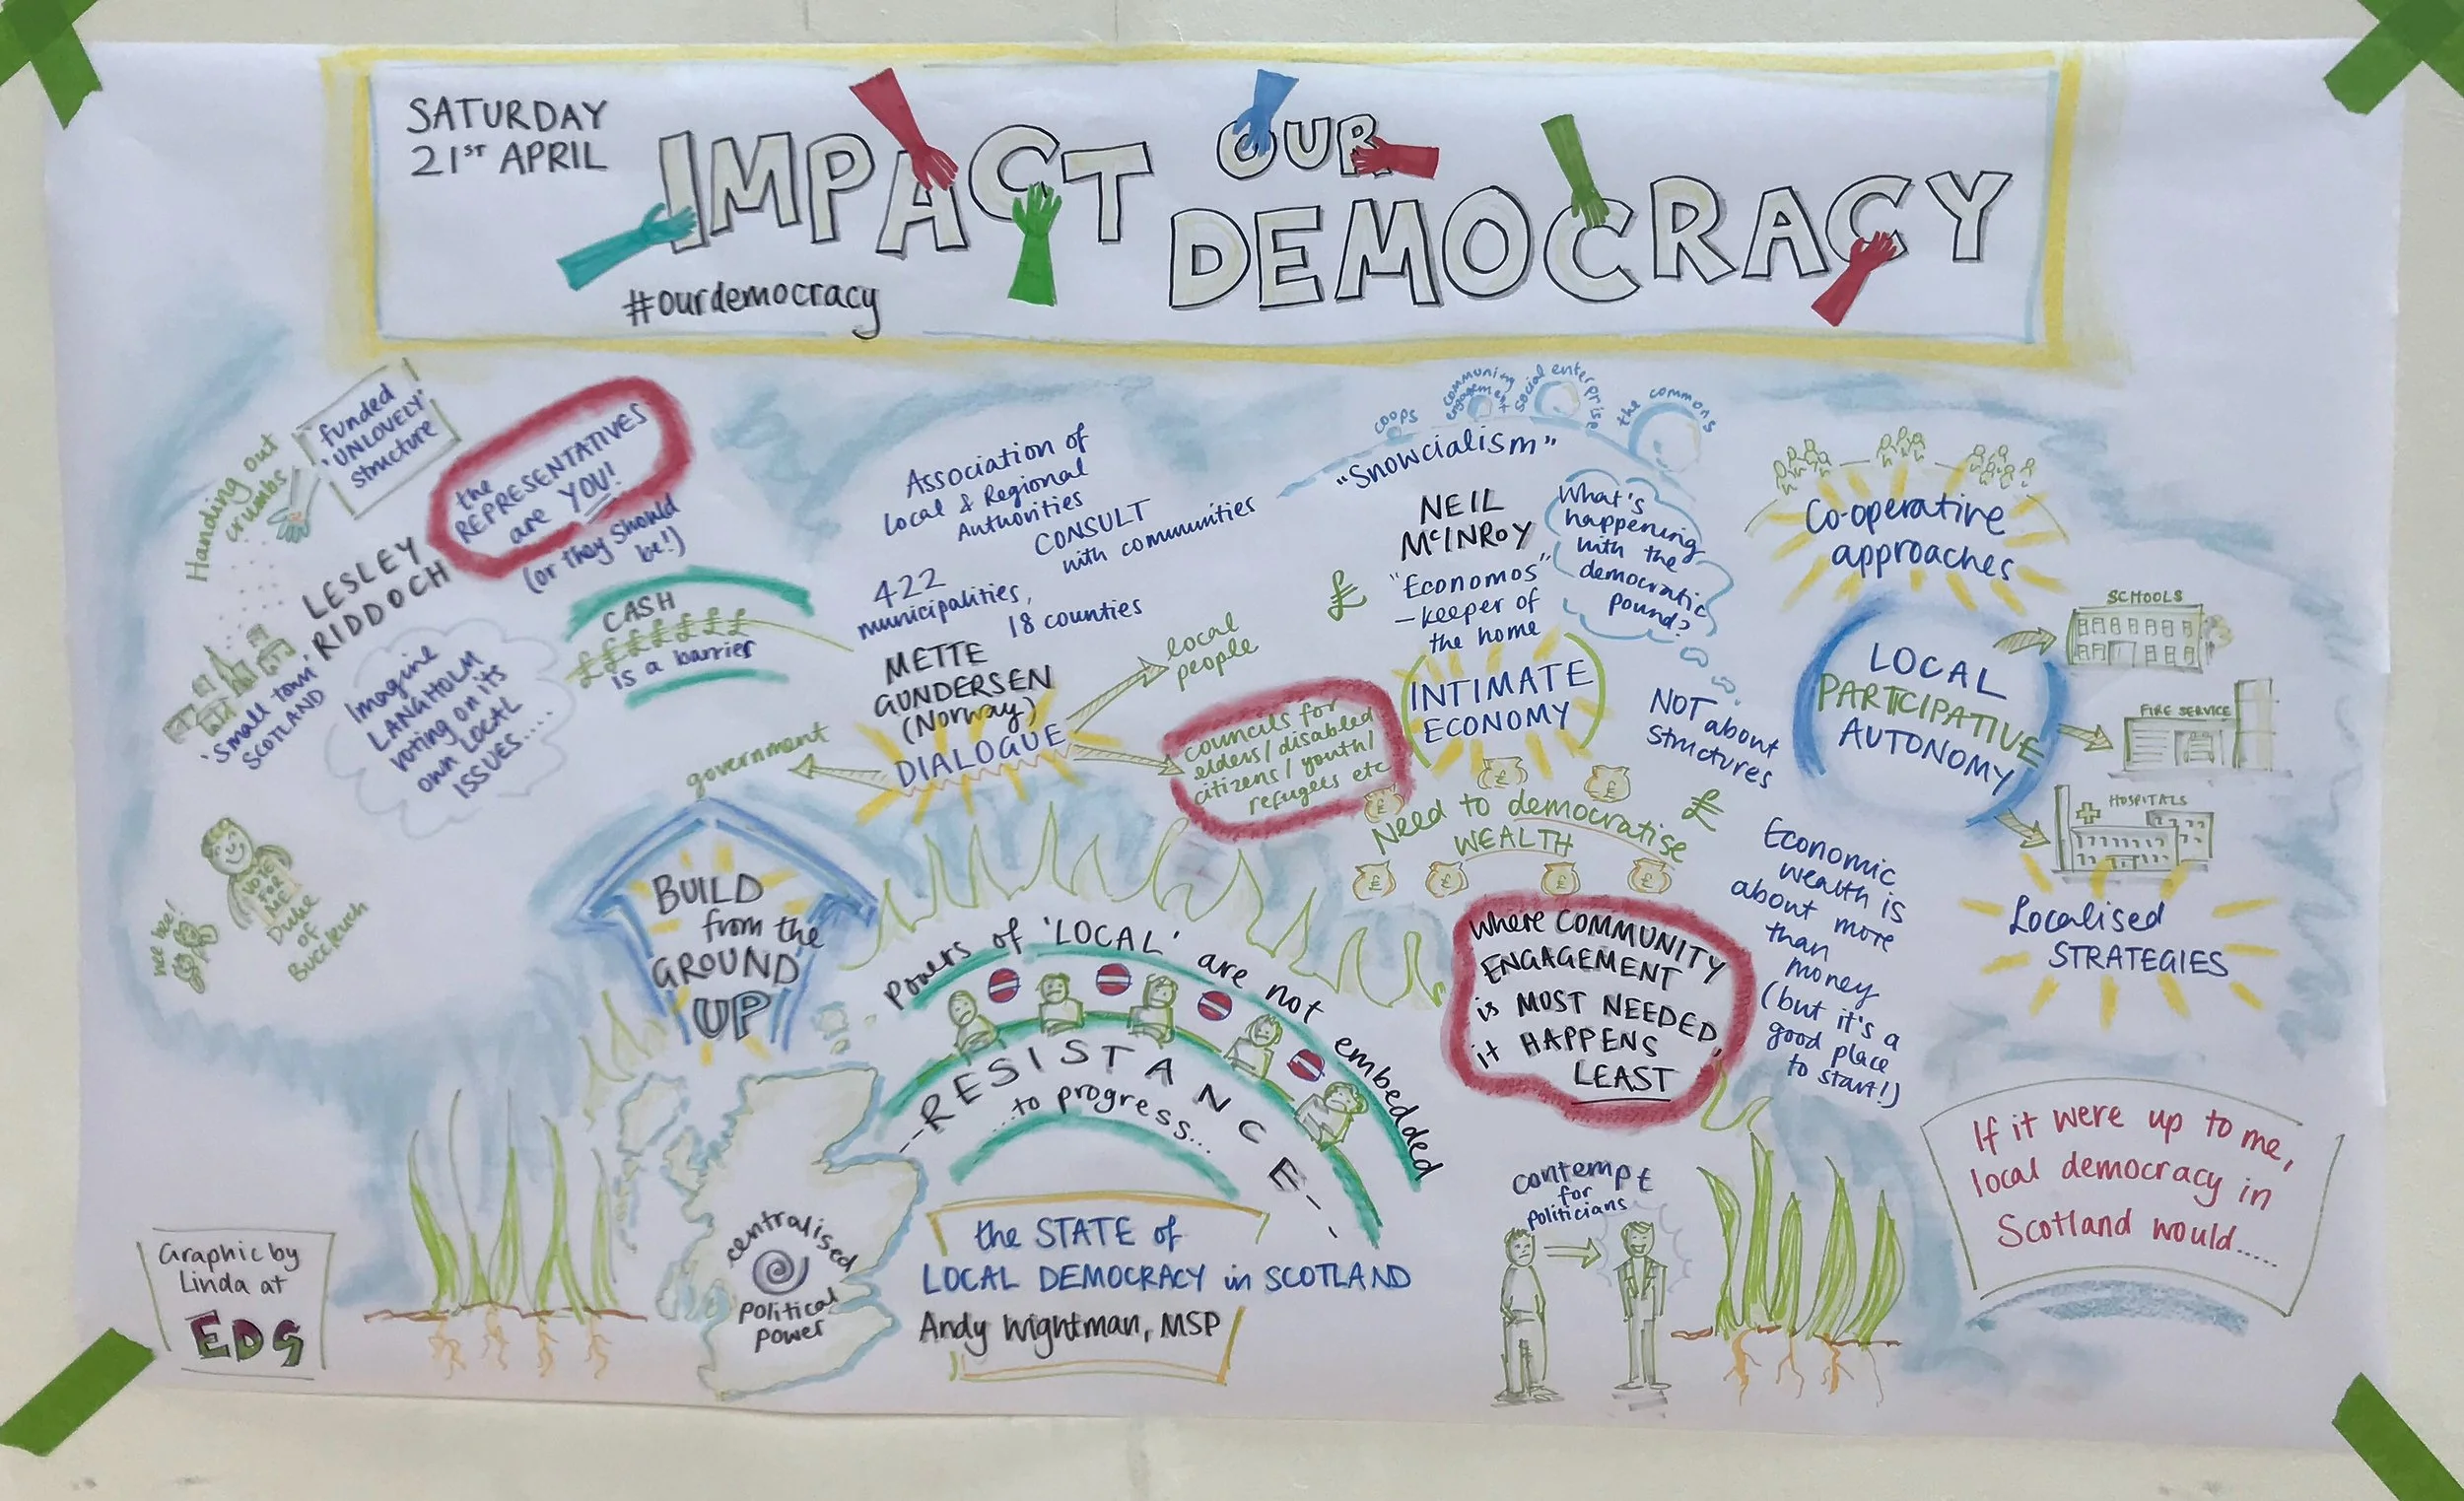 SATURDAY
21ST APRIL
IMPACT OUR
DEMOCRACY
#ourdemocracy
Handing out
crumbs
funded
'UNLOVELY'
structure
the
REPRESENTATIVES
are YOU!
(or they should
be!)
LESLEY
RIDDOCH
'Small town'
SCOTLAND
Imagine
LANGHOLM
voting on its
own LOCAL
ISSUES....
CASH
££££££
is a barrier
VOTE
FOR
ME
Duke
of
Buccleuch
Association of
Local & Regional
Authorities
CONSULT
with communities
422
municipalities,
18 counties
METTE
GUNDERSEN
(Norway)
DIALOGUE
government
local
people
councils for
elders/disabled
citizens/youth/
refugees etc
coops
community
engagement
social enterprise
the commons
"Snowcialism"
NEIL
McINROY
"Economos"
-keeper of
the home
£
What's
happening
with the
democratic
pound?
INTIMATE
ECONOMY
NOT about
structures
£
Need to democratise
WEALTH
£ £ £
£ £ £ £
Where COMMUNITY
ENGAGEMENT
is MOST NEEDED,
it HAPPENS
LEAST
Economic
wealth is
about more
than
money
(but it's a
good place
to start!)
Co-operative
approaches
LOCAL
PARTICIPATIVE
AUTONOMY
SCHOOLS
FIRE SERVICE
HOSPITALS
Localised
STRATEGIES
BUILD
from the
GROUND
UP
Powers of 'LOCAL' are not embedded
--RESISTANCE--
...to progress...
centralised
political
power
the STATE of
LOCAL DEMOCRACY in SCOTLAND
Andy Wightman, MSP
contempt
for
politicians
If it were up to me,
local democracy in
Scotland would.....
Graphic by
Linda at
EDS